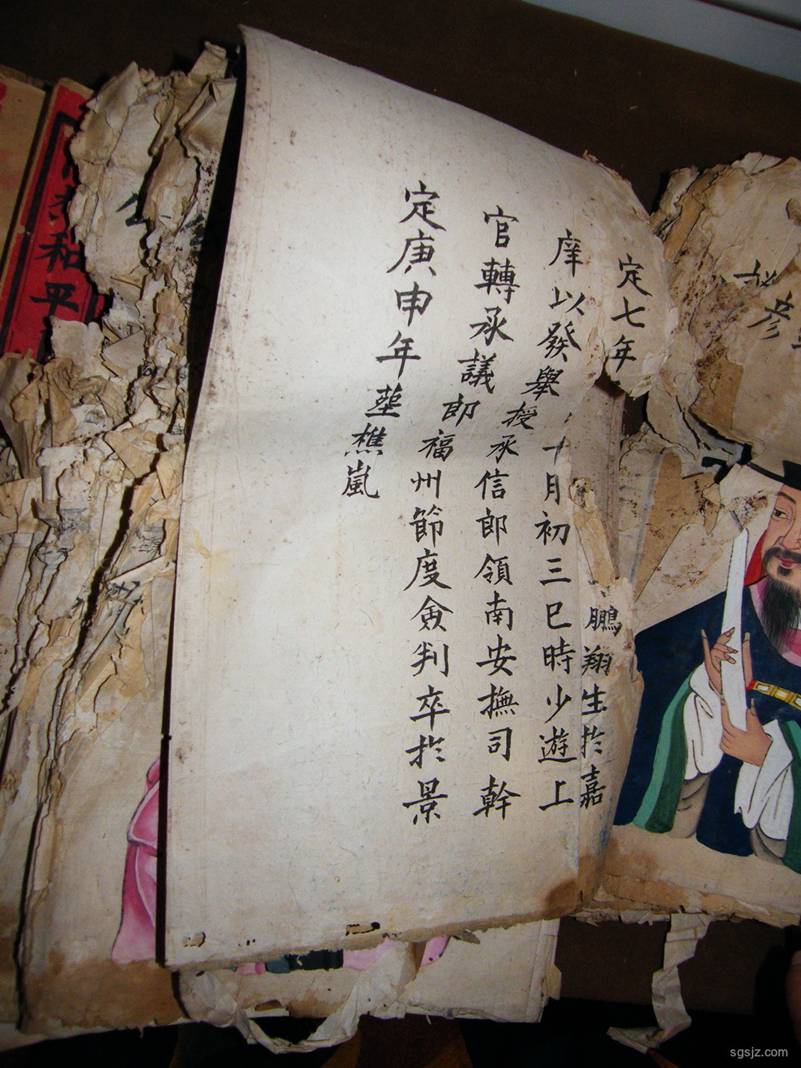 鵬翔生於嘉
定七年十月初三巳時少遊上
庠以發舉授承信郎領南安撫司幹
官轉承議郎福州節度僉判卒於景
定庚申年塟樵嵐
和平
sgsjz.com